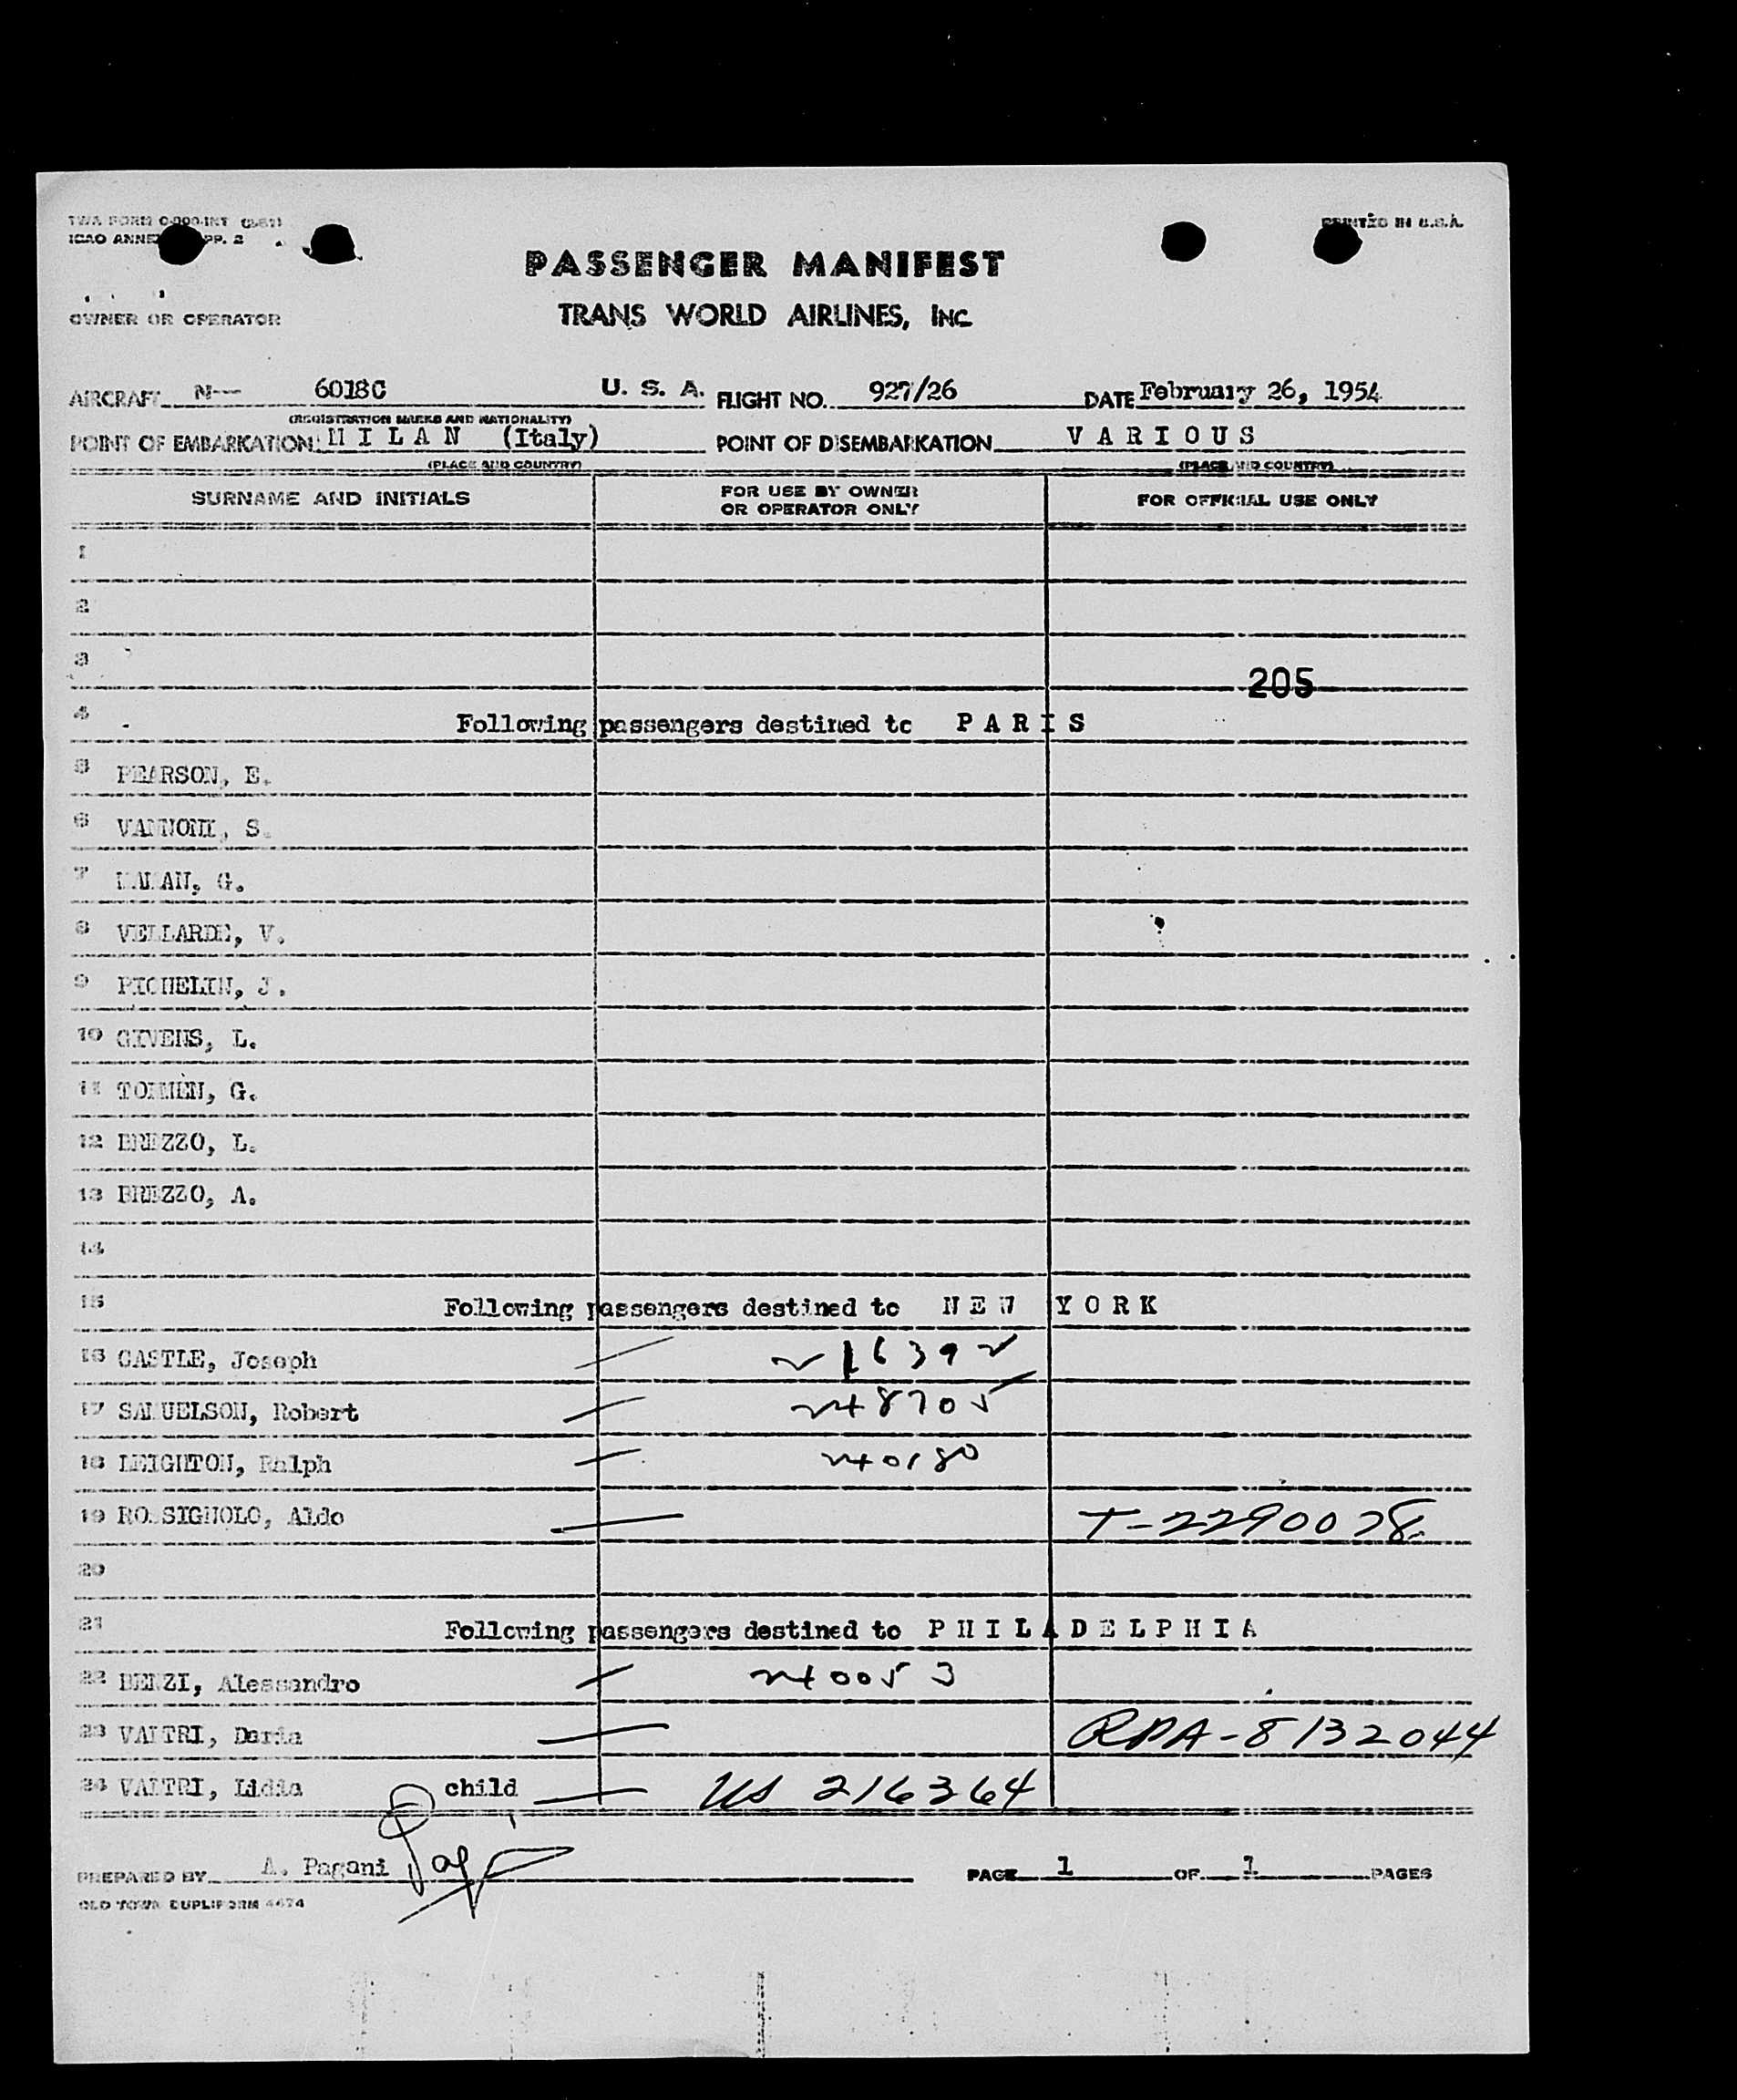 TWA FORM
PRINTED IN U.S.A.
ICAO ANNEX PP. 2
PASSENGER MANIFEST
OWNER OR OPERATOR
TRANS WORLD AIRLINES, INC.
AIRCRAFT N-- 6018C U. S. A. FLIGHT NO. 927/26 DATE February 26, 1954
(REGISTRATION MARKS AND NATIONALITY)
POINT OF EMBARKATION: M I L A N (Italy) POINT OF DISEMBARKATION V A R I O U S
(PLACE AND COUNTRY) (PLACE AND COUNTRY)
SURNAME AND INITIALS FOR USE BY OWNER OR OPERATOR ONLY FOR OFFICIAL USE ONLY
1
2
3
205
4 Following passengers destined to P A R I S
5 PEARSON, E.
6 VANNONI, S.
7 G.
8 VELLARDE, V.
9 PICHELIN, J.
10 GIVENS, L.
11 G.
12 BREZZO, L.
13 BREZZO, A.
14
15 Following passengers destined to N E W Y O R K
16 CASTLE, Joseph 1639
17 SAMUELSON, Robert 8705
18 LEIGHTON, Ralph 0180
19 ROSSIGNOLO, Aldo T-2290028
20
21 Following passengers destined to P H I L A D E L P H I A
22 Alessandro 0053
23 Daria RPA-8132044
24 Lidia child US 216364
PREPARED BY A. Pagani PAGE 1 OF 1 PAGES
OLD TOWN DUPLIFORM 4674